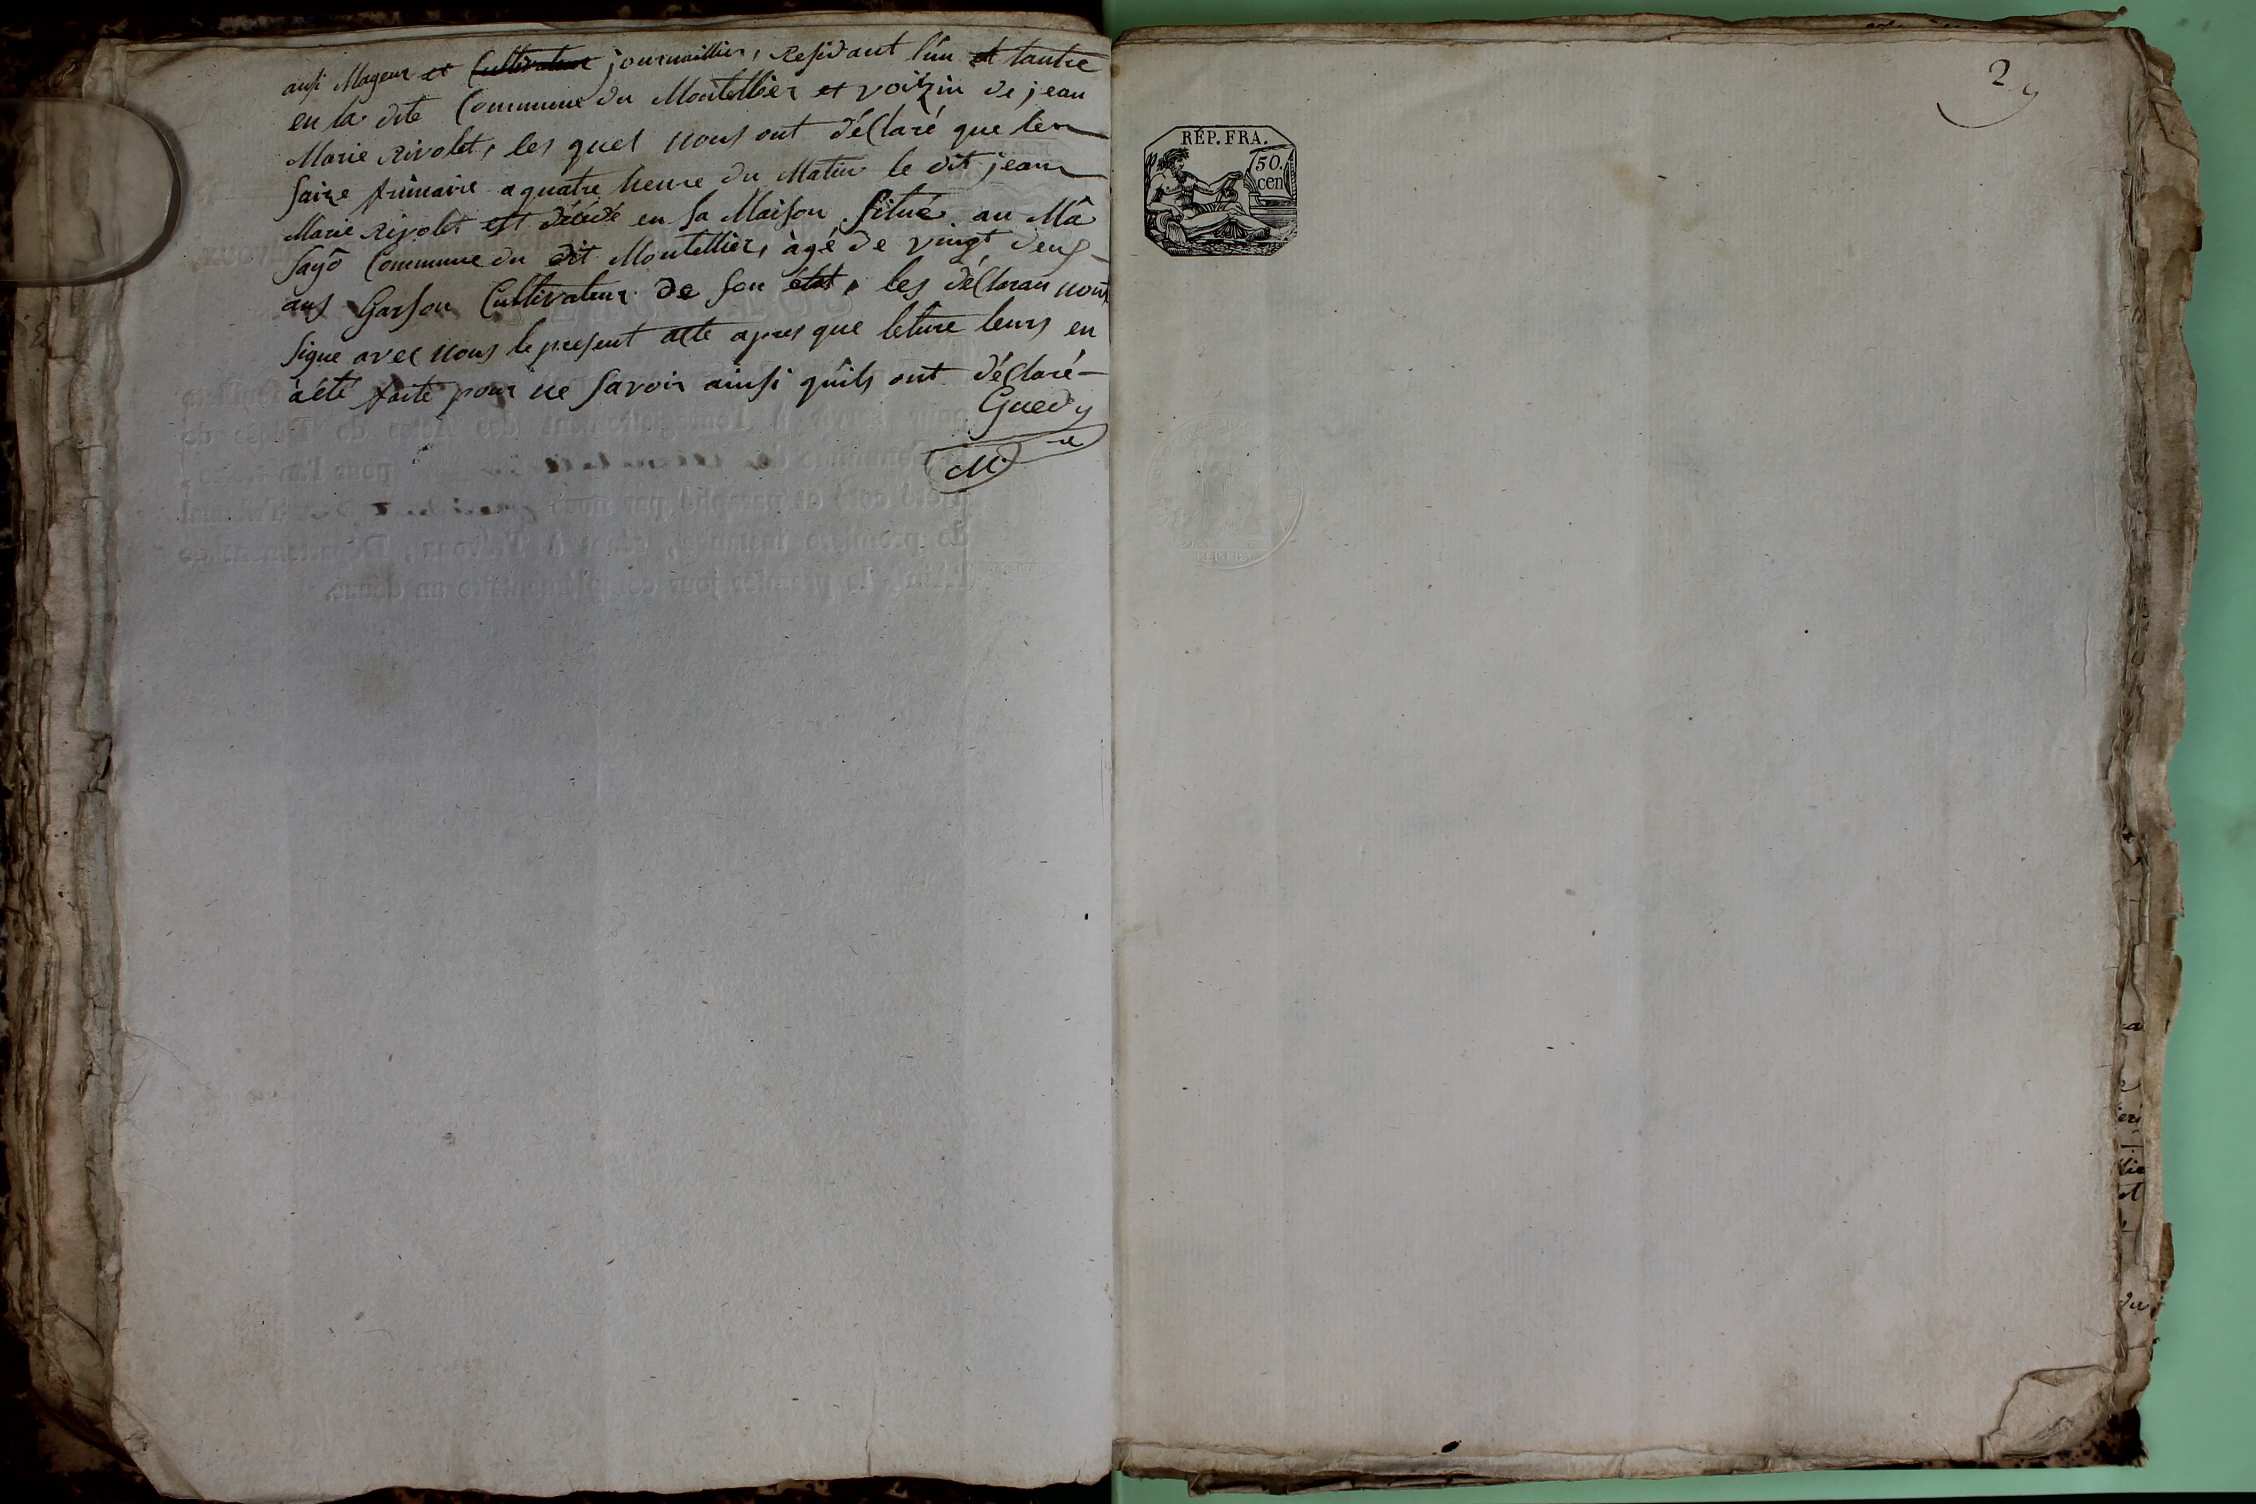 ausi Mageur et Cultivateur journaillier, Residant l'un et lautre
en la dite Commune du Montellier et voitzin de jean
Marie Rivolet, les quel nous ont déClaré que le
saize frimaire a quatre heure du Matin le dit jean
Marie Rivolet est décédé en sa Maison situé au Mâ
sayõ Commune du dit Montellier, àgé de vingt deux
ans Garson Cultivateur de son état, les déClaran nont
signe avec nous le present acte apres que leture leurs en
à été faite pour ne savoir ainsi qu'ils ont déClaré
Guedy
M
2
RÉP. FRA.
50.
cen